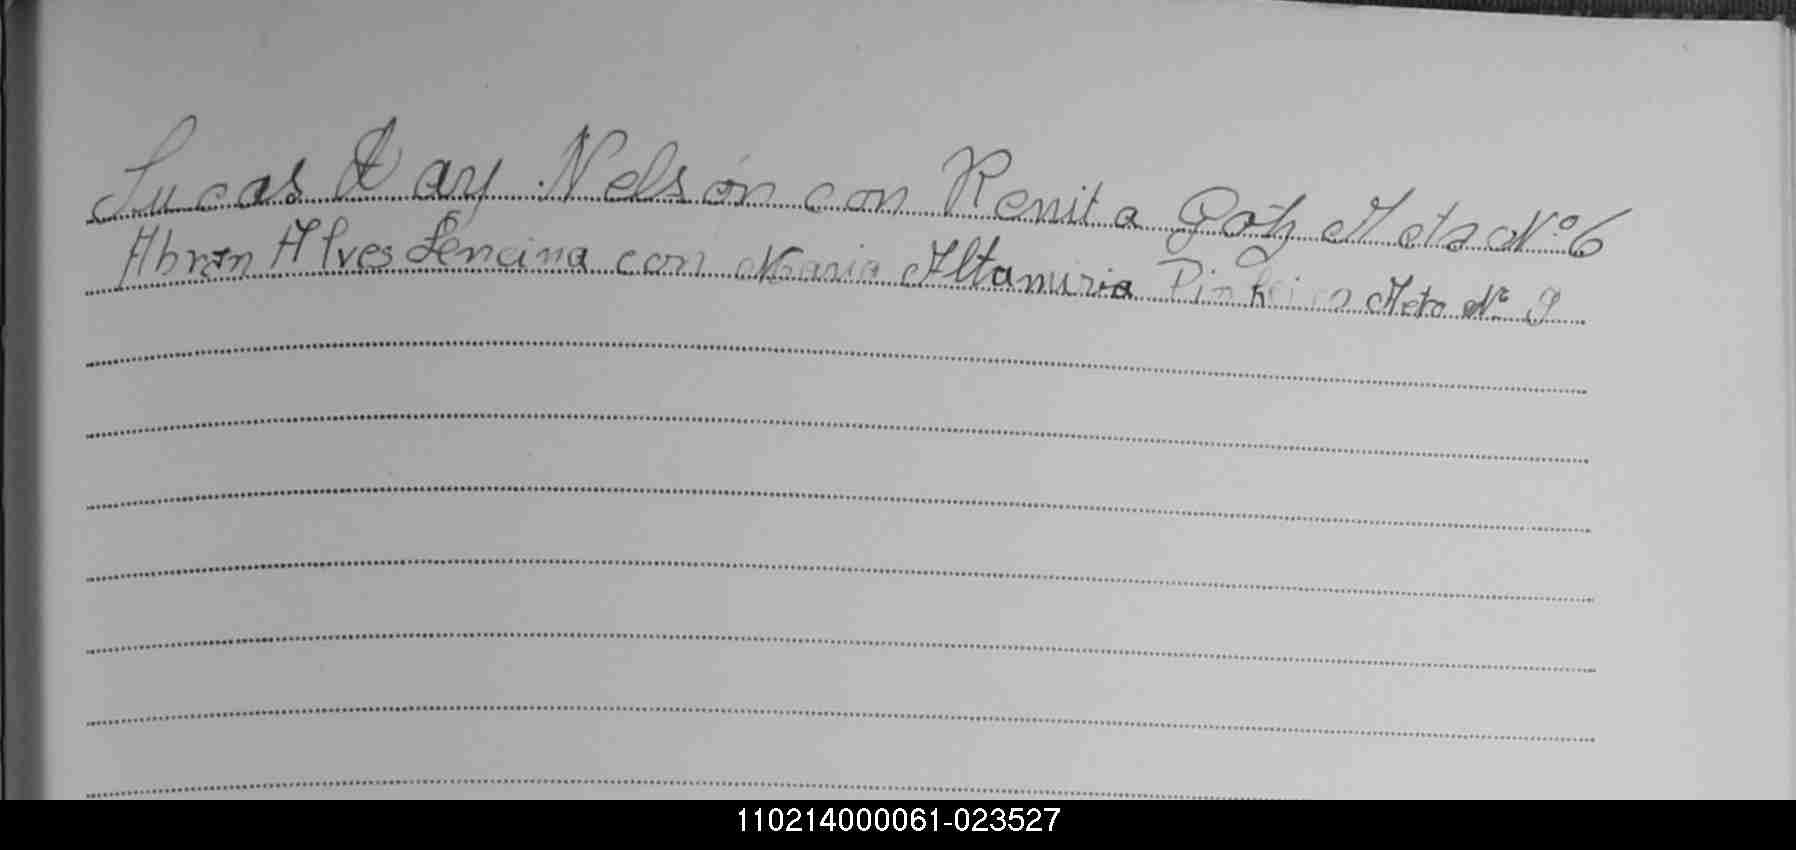 Lucas Ray Nelsón con Renita Götz Acta Nº 6
Abran Alves Lencina con Maria Altamiria Pinheiro Acta Nº 9
110214000061-023527